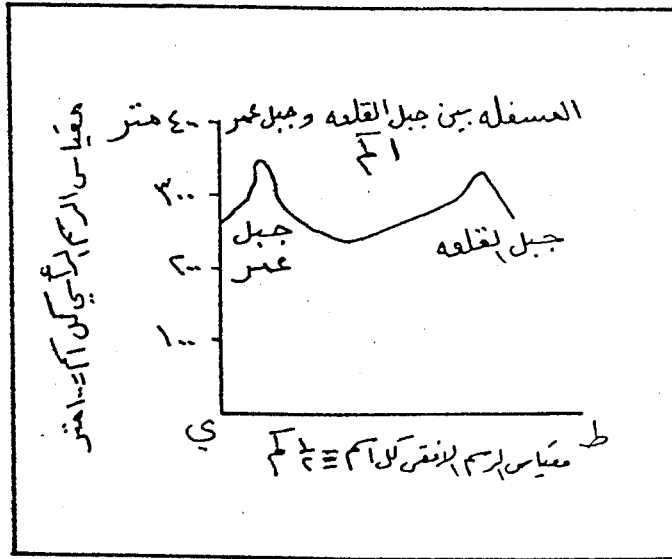 المسفله بين جبل القلعه وجبل عمر
١ كم
٤٠٠ متر
٣٠٠
٢٠٠
١٠٠
جبل عمر
جبل القلعه
ي
ط
مقياس الرسم الرأسي كل ١سم ≡ ١٠٠ متر
مقياس الرسم الافقي كل ١سم ≡ ١/٢ كم